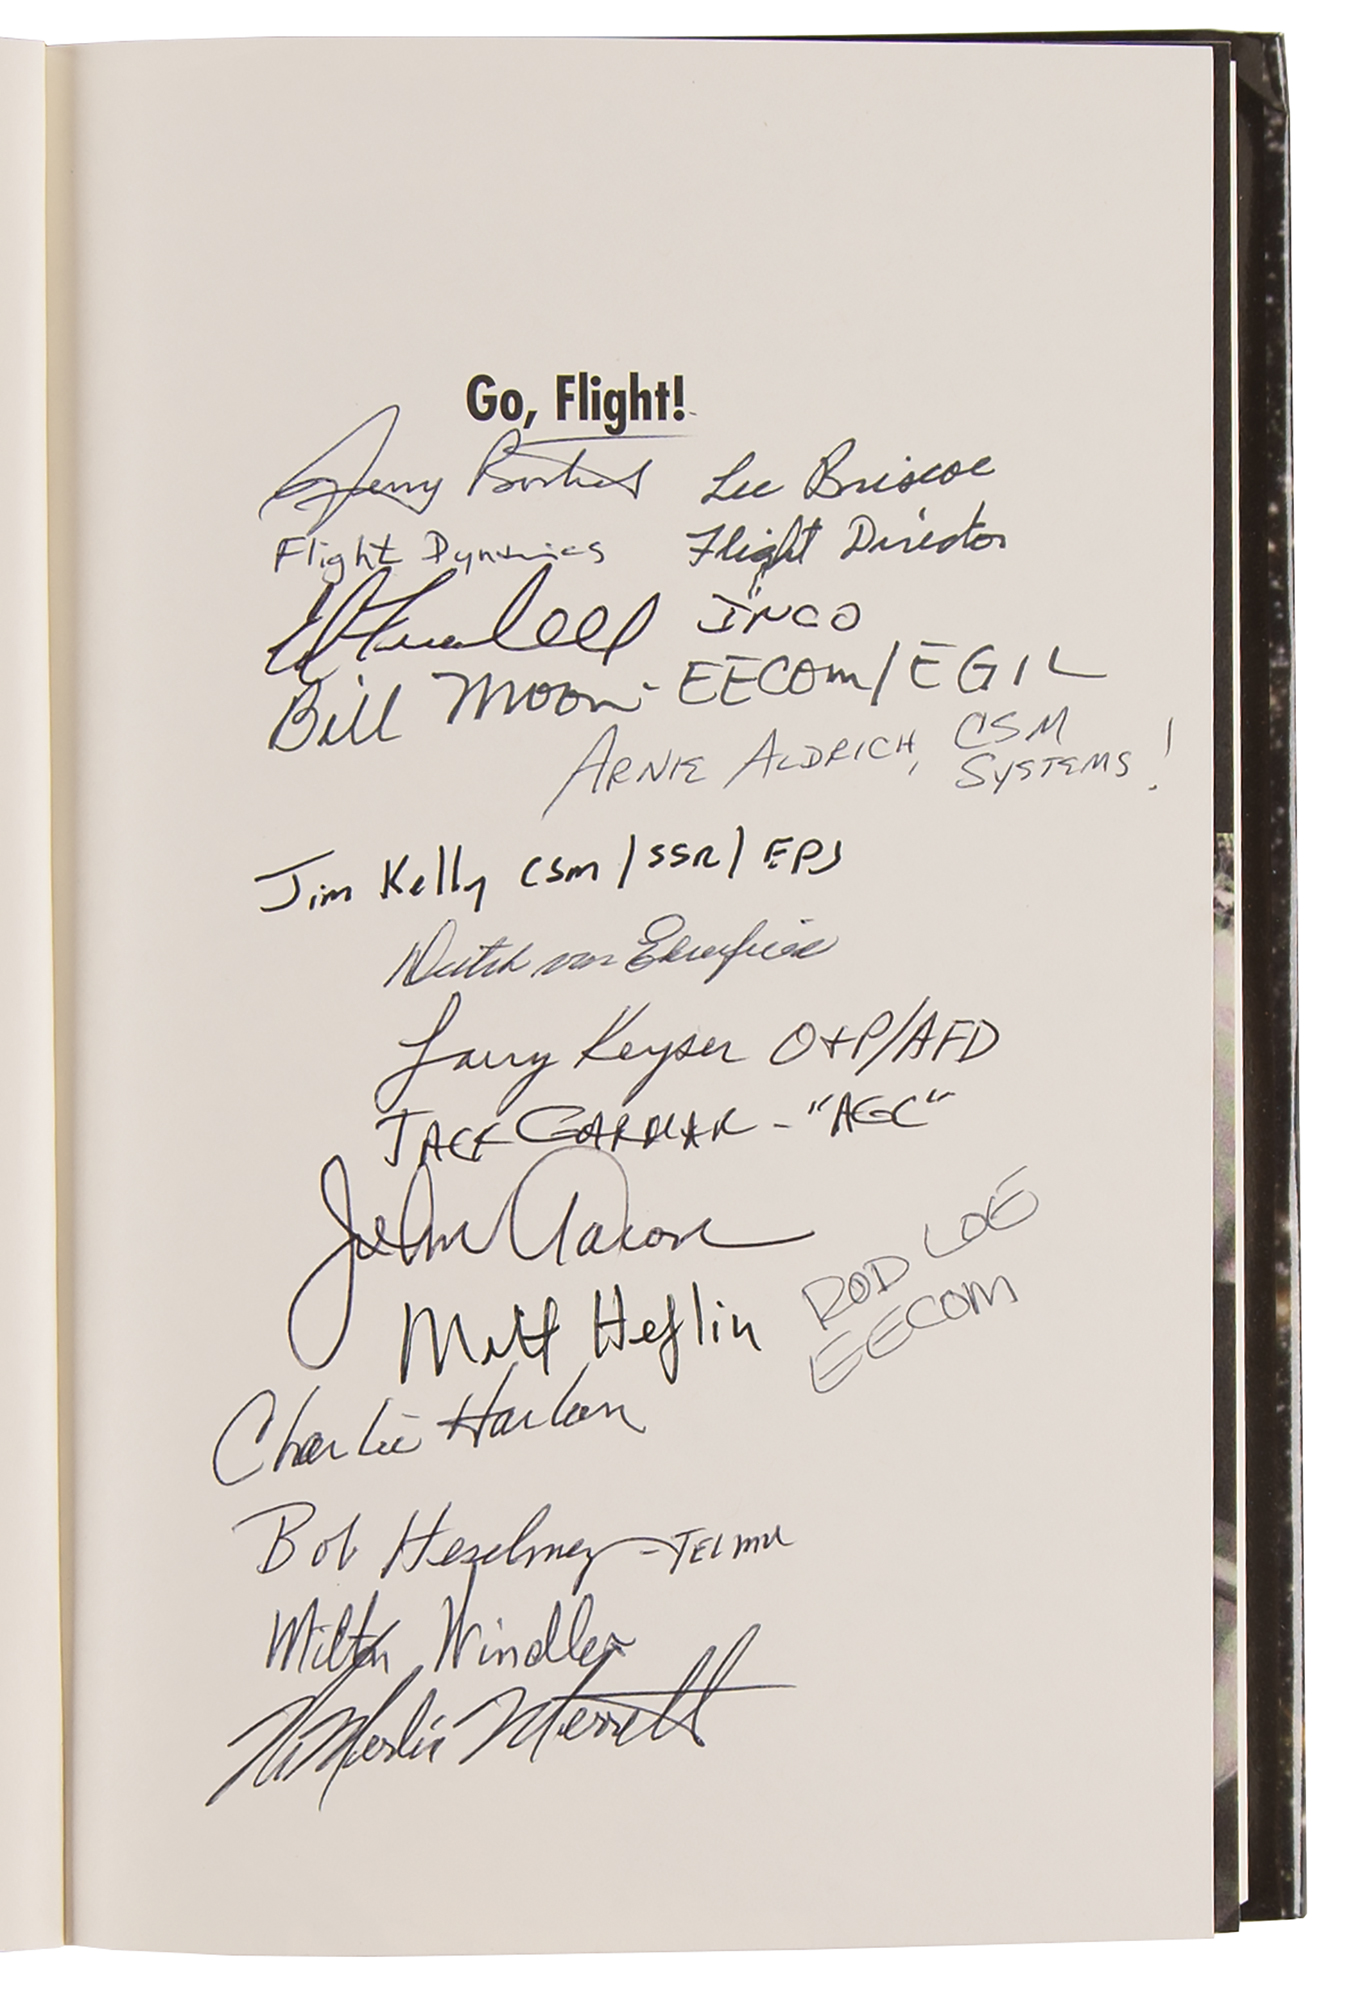 Go, Flight!
Jerry Bostick Lee Briscoe
Flight Dynamics Flight Director
Ed Fendell INCO
Bill Moon - EECOM/EGIL
ARNIE ALDRICH, CSM
SYSTEMS!
Jim Kelly CSM/SSR/EPS
Dutch von Ehrenfried
Larry Keyser O+P/AFD
JACK GARMAN - "AGC"
John Aaron
ROD LOE
EECOM
Milt Heflin
Charlie Harlan
Bob Heselmeyer - TELMU
Milton Windler
Merlin Merritt